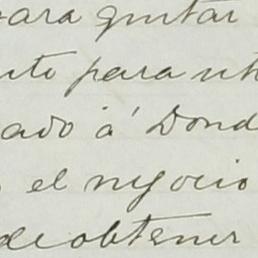 para quitar
nte para uti
ado á Dond
el negocio
de obtener